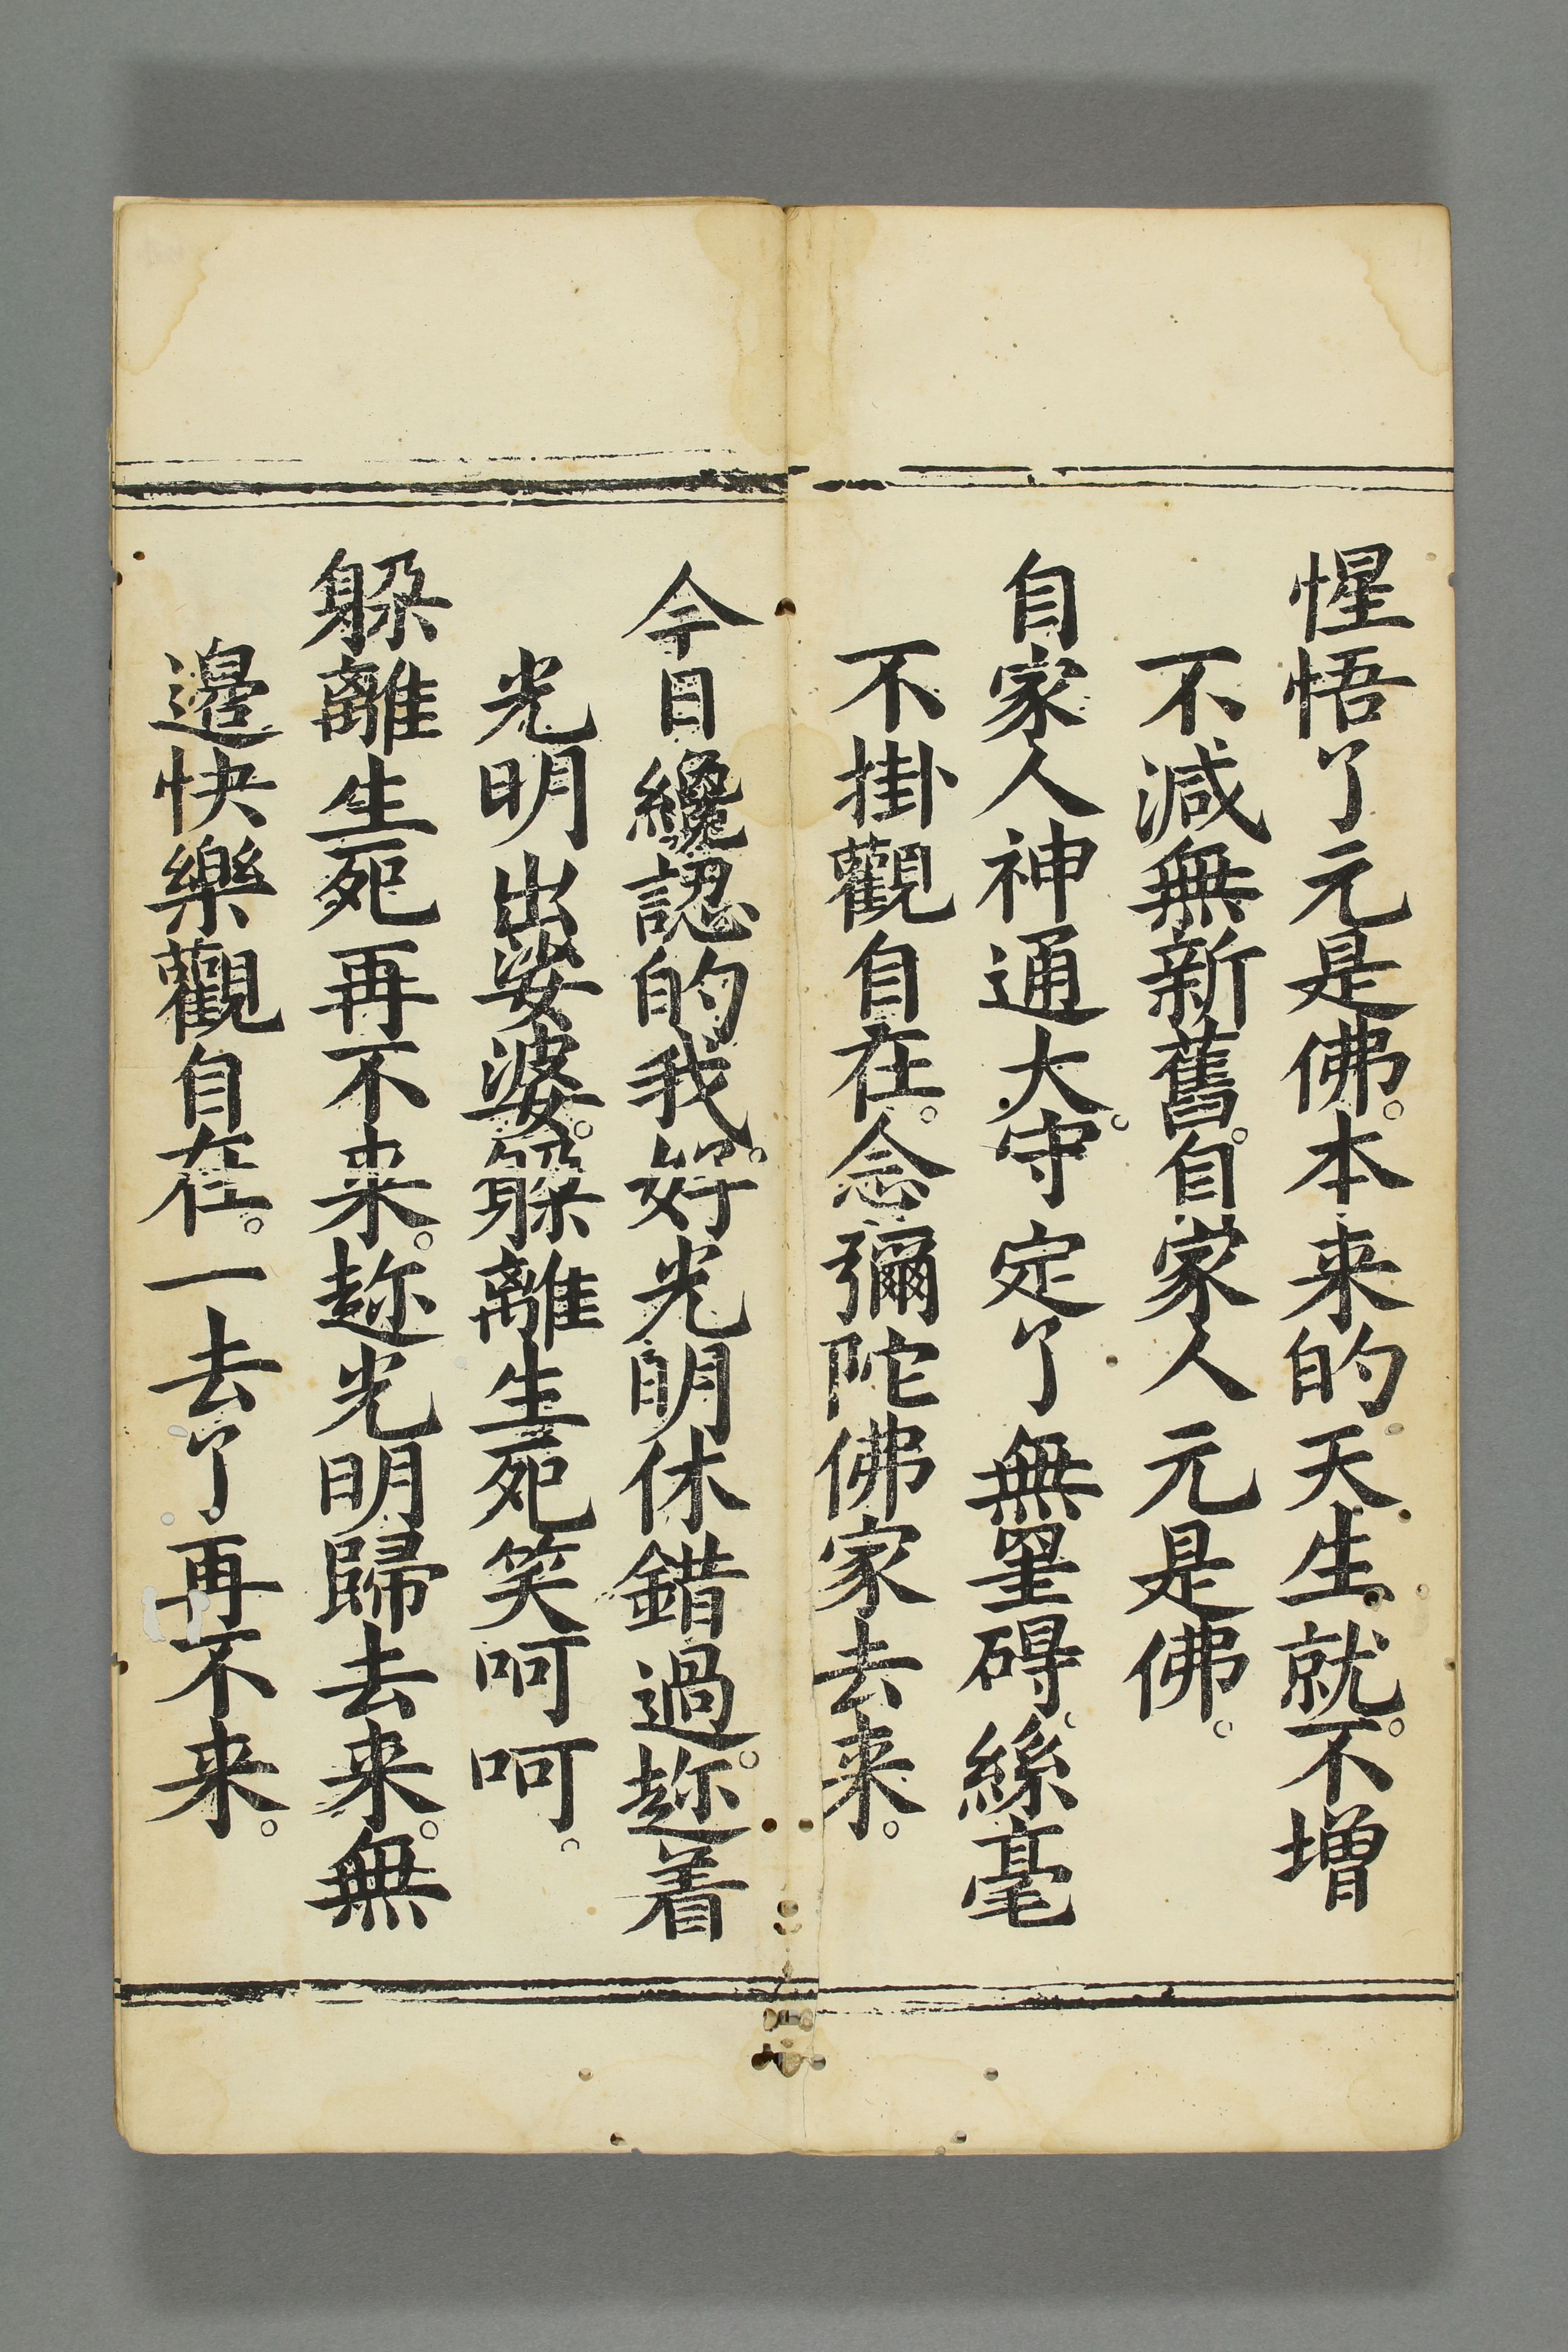 惺悟了元是佛。本来的天生就。不增
不減無新舊。自家人元是佛。
自家人神通大。守定了無罣碍。絲毫
不掛觀自在。念彌陀佛家去来。
今日纔認的我。好光明休錯過。趂着
光明出娑婆。躱離生死笑呵呵。
躱離生死再不来。趂光明歸去来。無
邉快樂觀自在。一去了再不来。